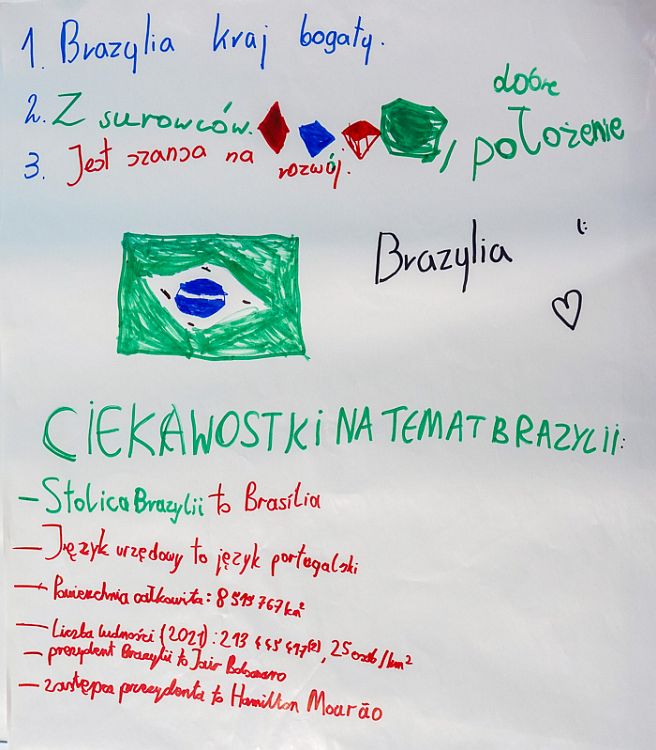 1. Brazylia kraj bogaty.
2. Z surowców. , dobre położenie
3. Jest szansa na rozwój.
Brazylia (:
CIEKAWOSTKI NA TEMAT BRAZYLII:
- Stolica Brazylii to Brasília
- Język urzędowy to język portugalski
- Powierzchnia całkowita: 8 515 767 km²
- Liczba ludności (2021): 213 445 417⁽²⁾, 25 osób/km²
- prezydent Brazylii to Jair Bolsonaro
- zastępca prezydenta to Hamilton Mourão